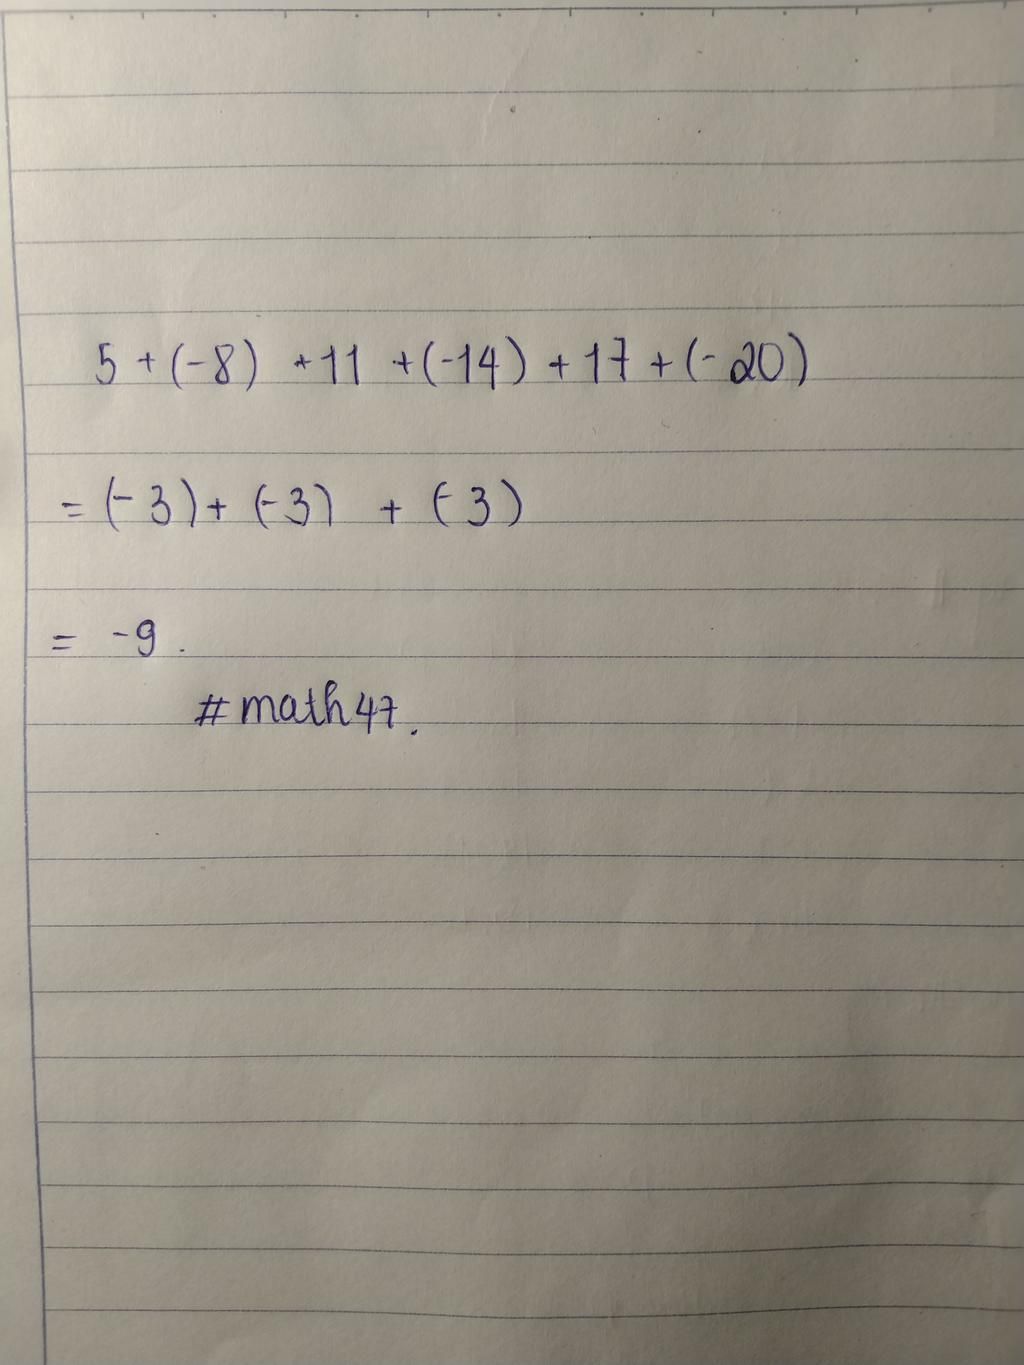 5 + (-8) + 11 + (-14) + 17 + (-20)
= (-3) + (-3) + (-3)
= -9 .
# math47.